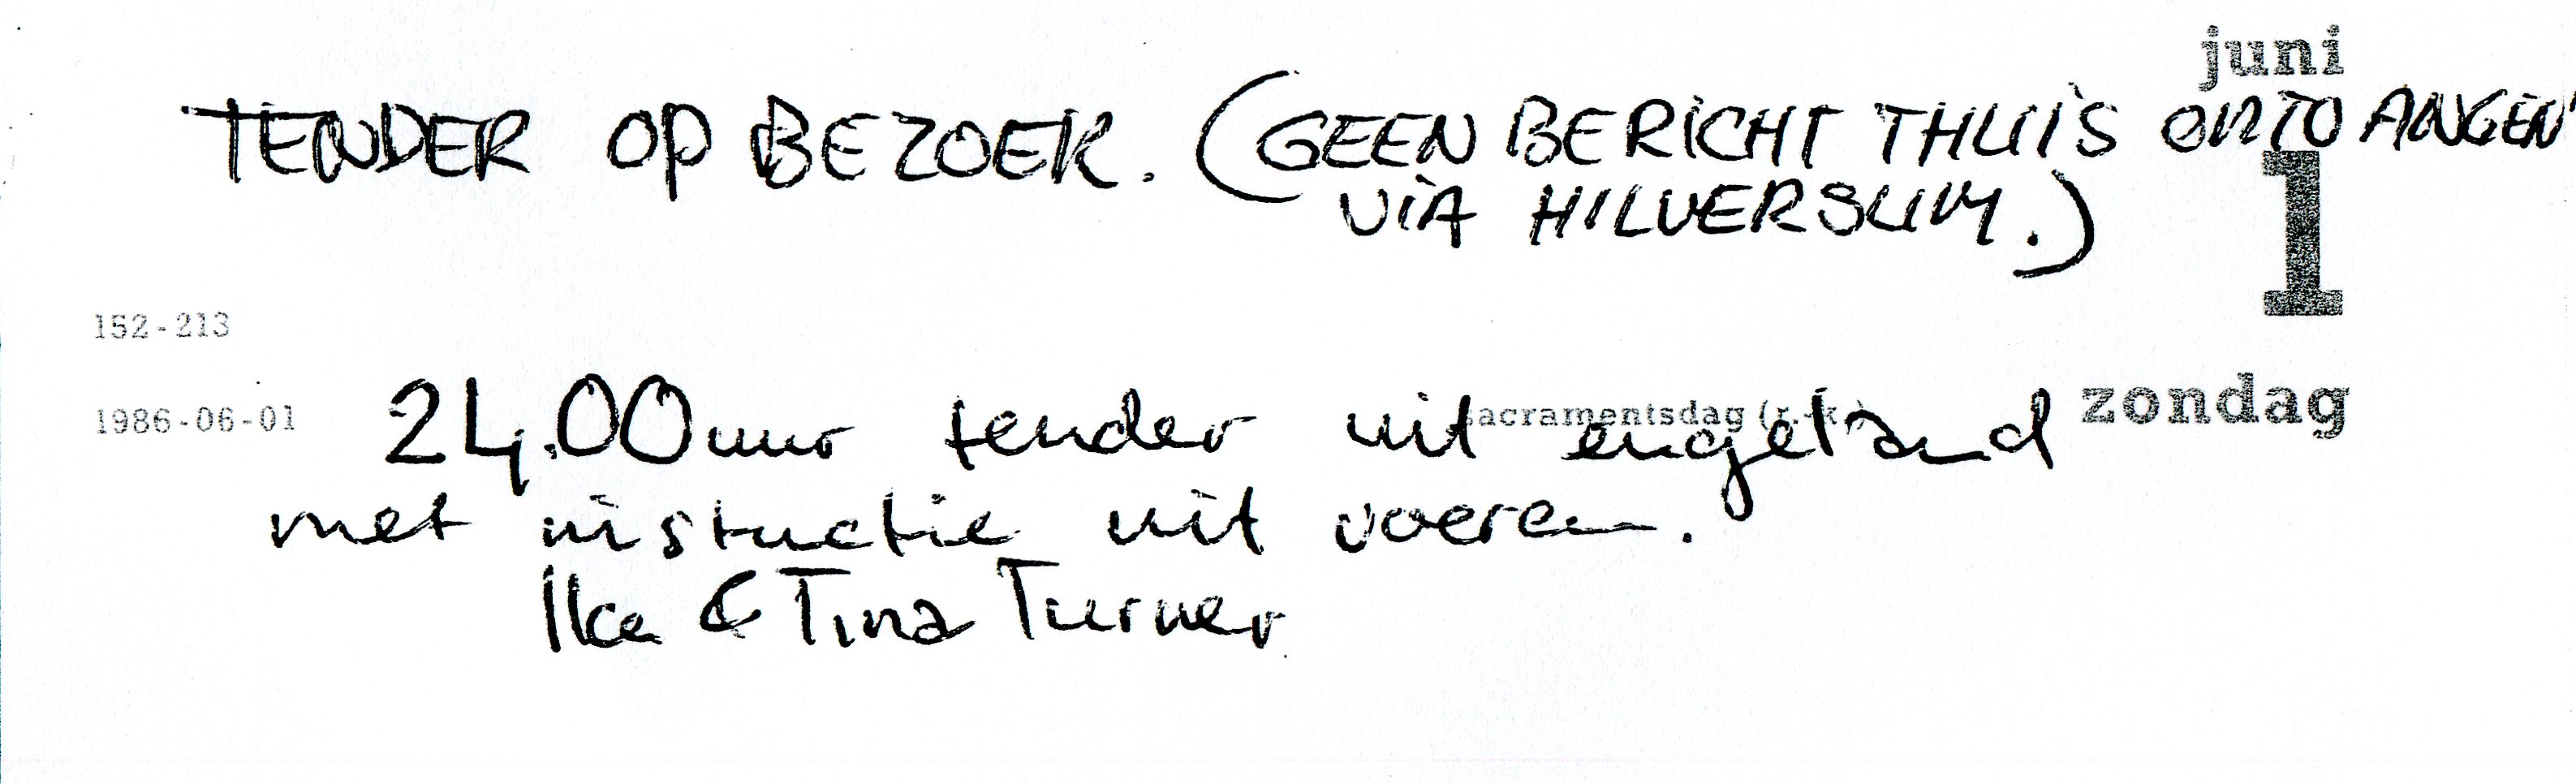 juni
TENDER OP BEZOEK. (GEEN BERICHT THUIS ONTVANGEN
VIA HILVERSUM.)
1
152-213
1986-06-01
sacramentsdag (r.-k.)
zondag
24.00 uur tender uit engeland
met instuctie uit voeren.
Ike & Tina Turner